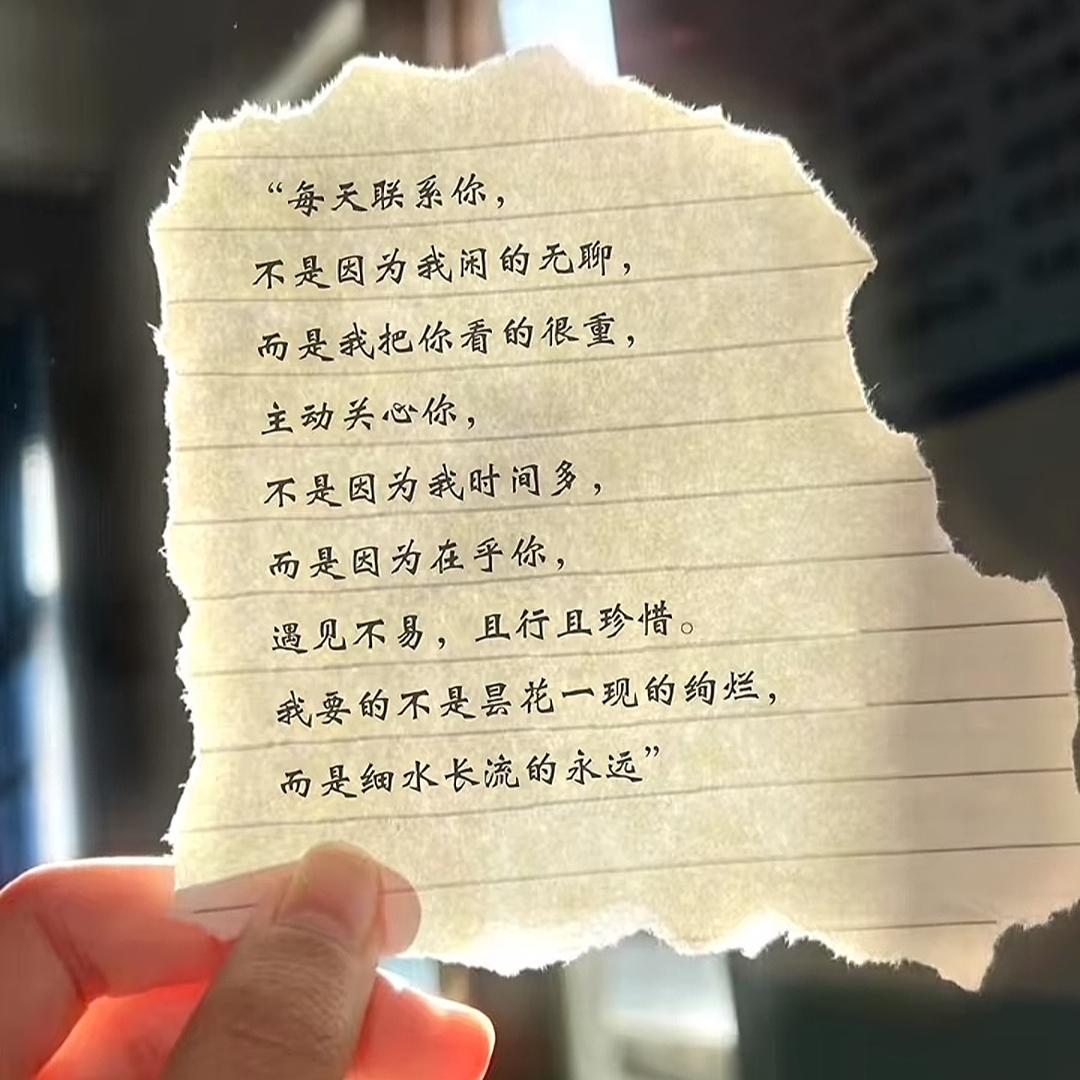 “每天联系你，
不是因为我闲的无聊，
而是我把你看的很重，
主动关心你，
不是因为我时间多，
而是因为在乎你，
遇见不易，且行且珍惜。
我要的不是昙花一现的绚烂，
而是细水长流的永远”